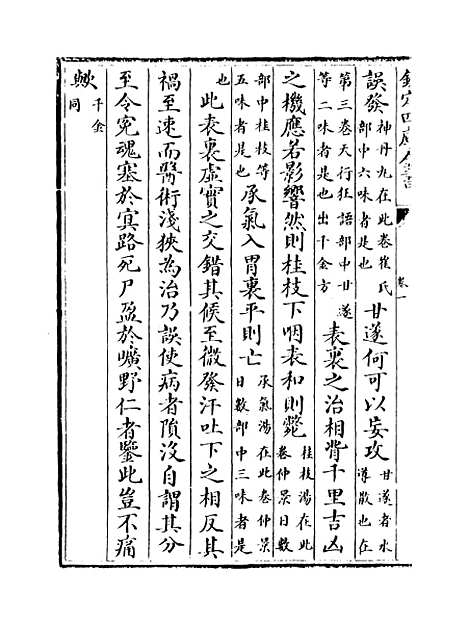 欽定四庫全書 卷一
誤發神丹九在此卷崔氏部中六味者是也甘遂何可以妄攻甘遂者水導散也在
第三卷天行狂語部中甘遂等二味者是也出千金方表裏之治相背千里吉凶
之機應若影響然則桂枝下咽表和則斃桂枝湯在此卷仲景日數
部中桂枝等五味者是也承氣入胃裏平則亡承氣湯在此卷仲景日數部中三味者是
也此表裏虛實之交錯其候至微發汗吐下之相反其
禍至速而醫術淺狹為治乃誤使病者隕沒自謂其分
至令寃魂塞於冥路死尸盈於曠野仁者鑒此豈不痛
歟千金同